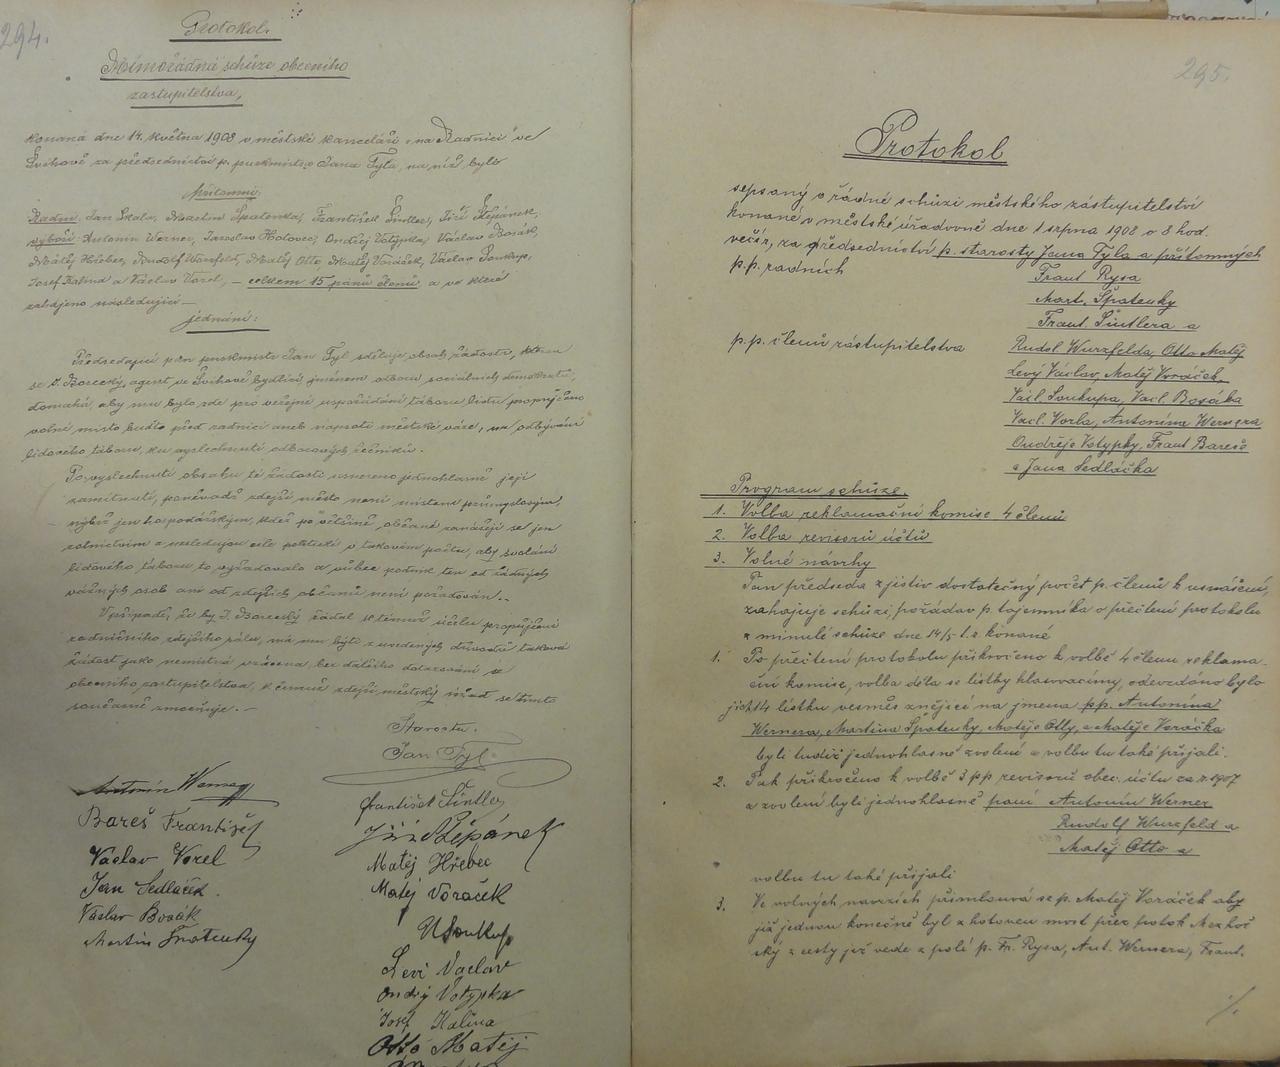 294.
Protokol.
Mimořádná schůze obecního
zastupitelstva,
konaná dne 14. května 1908 v městské kanceláři na Radnici ve
Švihově za předsednictví p. purkmistra Jana Tyla, na níž bylo
Přítomni:
Radní: Jan Skala, Martin Špatenka, František Šintler, Jiří Štěpánek,
výboři: Antonín Werner, Jaroslav Hotovec, Ondřej Votypka, Václav Bosák,
Matěj Hřebec, Rudolf Wurzfeld, Matěj Otto, Matěj Voráček, Václav Soukup,
Josef Kalina a Václav Vorel, – celkem 15 pánů členů, a ve které
zahájeno následující –
jednání:
Předsedající pan purkmistr Jan Tyl sděluje obsah žádosti, kterou
se J. Borecký, agent ve Švihově bydlící jménem odboru sociálních demokratů,
domáhá, aby mu bylo zde pro veřejné uspořádání táboru lidu propůjčeno
volné místo buďto před radnicí aneb naproti městské váze, na odbývání
lidového táboru, ku vyslechnutí odborových řečníků.
Po vyslechnutí obsahu té žádosti usneseno jednohlasně její
zamítnutí, poněvadž zdejší město není místem průmyslovým,
nýbrž jen hospodářským, kdež po většině občané zanášejí se jen
rolnictvím a nesledujou cíle politické v takovém počtu, aby svolání
lidového táboru to vyžadovalo a vůbec podnik ten od žádných
vážných osob ani od zdejších občanů není požadován. –
V případě, že by J. Borecký žádal k témuž účelu propůjčení
radničního zdejšího sálu, má mu býti z uvedených důvodů taková
žádost jako nemístná vrácena bez dalšího dotazování se
obecního zastupitelstva, k čemuž zdejší městský úřad se tímto
současně zmocňuje. –
Starosta:
Jan Tyl
Antonín Werner
Bareš František
Vaclav Vorel
Jan Sedláček
Václav Bosák
Martin Špatenky
František Šintler
Jiří Štěpánek
Matěj Hřebec
Matěj Voraček
V Soukup
Levi Vaclav
Ondřj Votypka
Josef Kalina
Otto Matěj
295.
Protokol
sepsaný o řádné schůzi městského zástupitelství
konané v městské úřadovně dne 1 srpna 1908 o 8 hod.
večer, za předsednictví p. starosty Jana Tyla a přítomných
p.p. radních
Frant Rysa
Mart. Špatenky
Frant. Šintlera a
p.p. členů zástupitelstva
Rudol. Wurzfelda, Otto Matěj
Levý Václav, Matěj Voráček,
Václ. Soukupa, Vacl. Bosáka
Vacl. Vorla, Antonína Wernera
Ondřeje Votypky, Frant Bareše
a Jana Sedláčka
Program schůze.
1. Volba reklamační komise 4 členů
2. Volba revisorů účtů
3. Volné návrhy
Pan předseda zjistiv dostatečný počet p. členů k usnášení,
zahajuje schůzi, požádav p. tajemníka o přečtení protokolu
z minulé schůze dne 14/5 t. r. konané
1. Po přečtení protokolu přikročeno k volbě 4 členů reklama-
ční komise, volba děla se lístky hlasovacími, odevzdáno bylo
jich 14 lístků vesměs znějící na jmena pp. Antonína
Wernera, Martina Špatenky, Matěje Otty, a Matěje Voráčka
byli tudíž jednohlasně zvoleni a volbu tu také přijali.
2. Pak přikročeno k volbě 3 pp revisorů obec. účtu za r 1907
a zvoleni byli jednohlasně páni Antonín Werner
Rudolf Wurzfeld a
Matěj Otto a
volbu tu také přijali
3. Ve volných návrzích přimlouvá se p. Matěj Voráček aby
již jednou konečně byl zhotoven most přez potok Mezhoř
ský z cesty jež vede z polí p. Fr. Rysa, Ant. Wernera, Frant.
./.